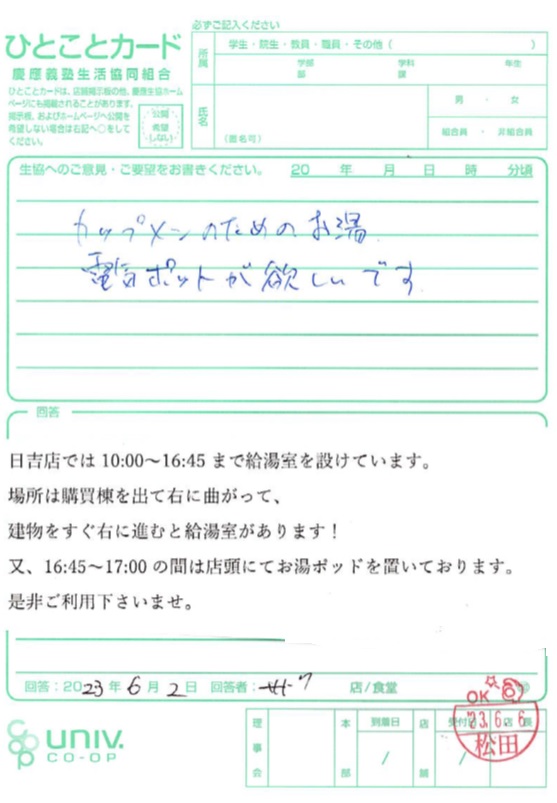 必ずご記入ください
ひとことカード
慶應義塾生活協同組合
ひとことカードは、店舗掲示板の他、慶應生協ホーム
ページにも掲載されることがあります。
掲示板、およびホームページへ公開を
希望しない場合は右記へ○をして
ください。
公開
希望
しない
所属
学生・院生・教員・職員・その他( )
学部 学科 年生
部 課
氏名
(匿名可)
男 ・ 女
組合員 ・ 非組合員
生協へのご意見・ご要望をお書きください。 20 年 月 日 時 分頃
カップメンのためのお湯
電気ポットが欲しいです
回答
日吉店では 10:00~16:45 まで給湯室を設けています。
場所は購買棟を出て右に曲がって、
建物をすぐ右に進むと給湯室があります!
又、16:45~17:00 の間は店頭にてお湯ポッドを置いております。
是非ご利用下さいませ。
回答:2023年6月2日 回答者: 店/食堂
OK
'23.6.6
松田
UNIV.
CO-OP
理事会
本部
到着日
/
店舗
受付
/
長